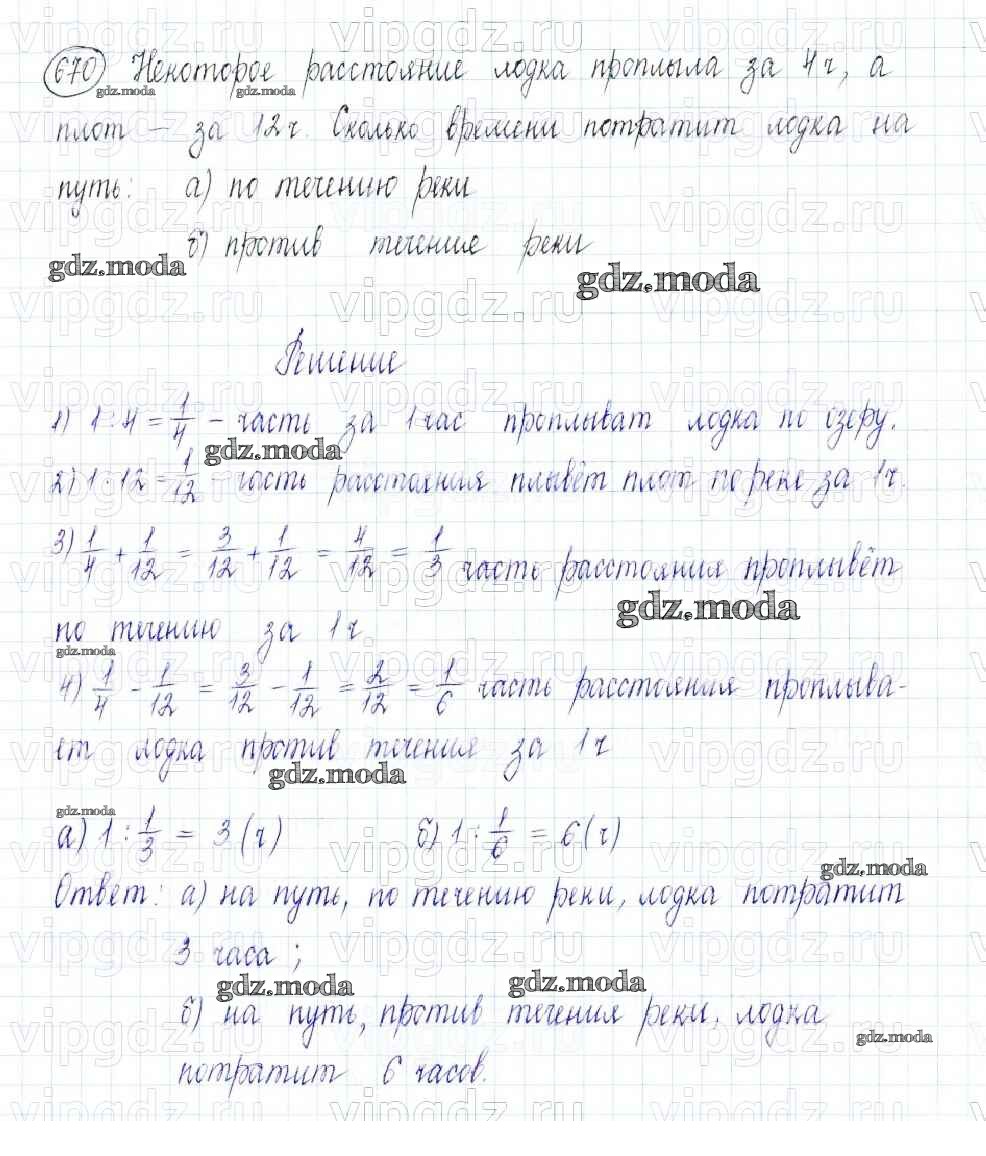 670 Некоторое расстояние лодка проплыла за 4 ч, а
плот – за 12 ч. Сколько времени потратит лодка на
путь: а) по течению реки
б) против течение реки
Решение
1) 1 : 4 = 1/4 – часть за 1 час проплыват лодка по озеру.
2) 1 : 12 = 1/12 – часть расстояния плывёт плот по реке за 1 ч.
3) 1/4 + 1/12 = 3/12 + 1/12 = 4/12 = 1/3 часть расстояния проплывёт
по течению за 1 ч
4) 1/4 - 1/12 = 3/12 - 1/12 = 2/12 = 1/6 часть расстояния проплыва-
ет лодка против течения за 1 ч
а) 1 : 1/3 = 3 (ч) б) 1 : 1/6 = 6 (ч)
Ответ: а) на путь, по течению реки, лодка потратит
3 часа;
б) на путь, против течения реки, лодка
потратит 6 часов.
gdz.moda
vipgdz.ru